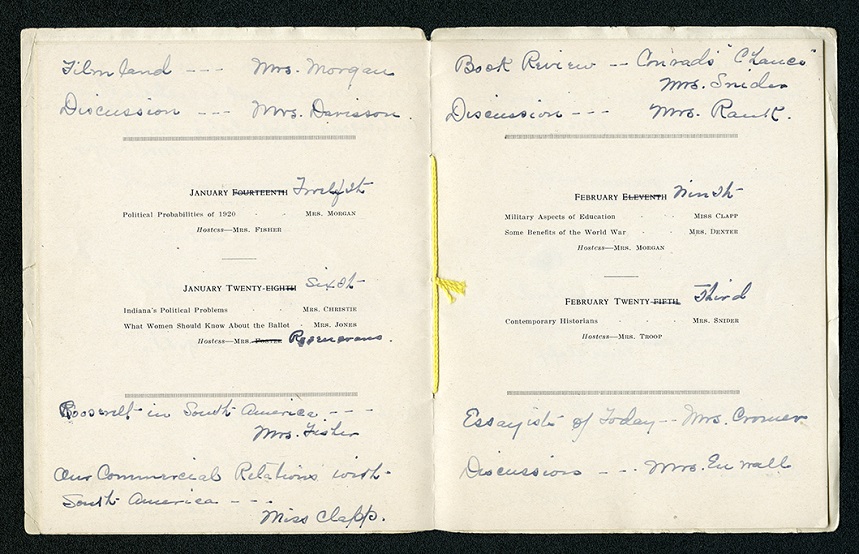 Filmland --- Mrs. Morgan
Discussion --- Mrs. Davisson.
JANUARY FOURTEENTH Twelfth
Political Probabilities of 1920 · · MRS. MORGAN
Hostess—MRS. FISHER
JANUARY TWENTY-EIGHTH Sixth
Indiana's Political Problems · · MRS. CHRISTIE
What Women Should Know About the Ballot · MRS. JONES
Hostess—MRS. FOSTER
Roosevelt in South America. ---
Mrs. Fisher
Our Commercial Relations with
South America ---
Miss Clapp.
Book Review -- Conrads "Chance"
Mrs. Snider
Discussion --- Mrs. Rank.
FEBRUARY ELEVENTH Ninth
Military Aspects of Education · · MISS CLAPP
Some Benefits of the World War · · MRS. DENTER
Hostess—MRS. MORGAN
FEBRUARY TWENTY-FIFTH Third
Contemporary Historians · · MRS. SNIDER
Hostess—MRS. TROOP
Essayists of Today -- Mrs. Cromer
Discussions --- Mrs. Enwall